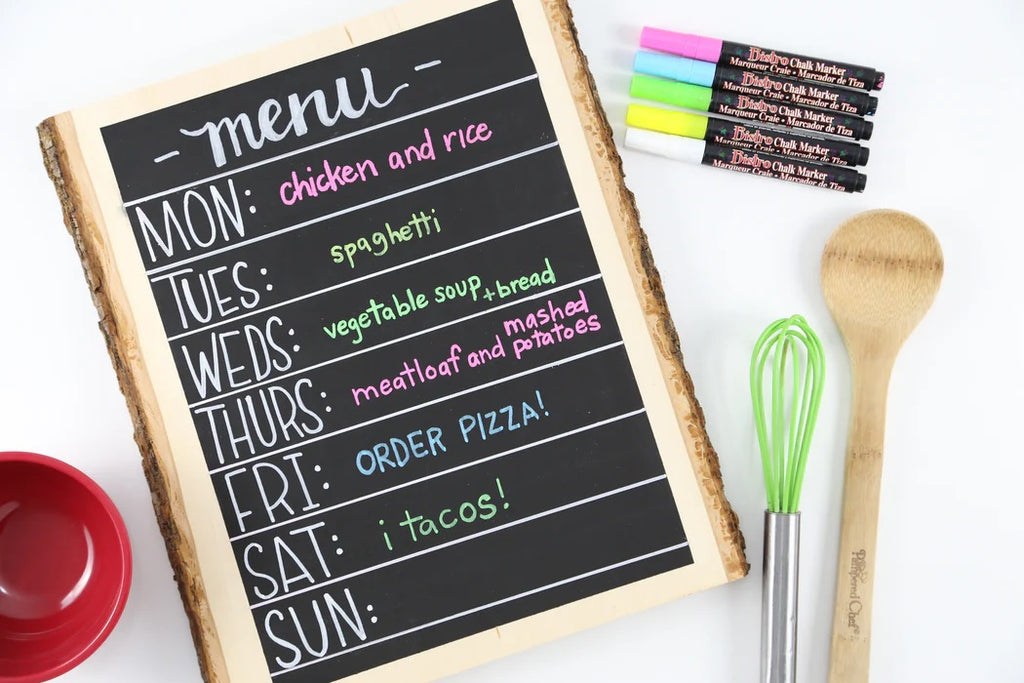 - menu -
MON: chicken and rice
TUES: spaghetti
WEDS: vegetable soup + bread
THURS: meatloaf and mashed potatoes
FRI: ORDER PIZZA!
SAT: ¡ tacos!
SUN:
Bistro Chalk Marker
Marqueur Craie • Marcador de Tiza
Bistro Chalk Marker
Marqueur Craie • Marcador de Tiza
Bistro Chalk Marker
Marqueur Craie • Marcador de Tiza
Bistro Chalk Marker
Marqueur Craie • Marcador de Tiza
Bistro Chalk Marker
Marqueur Craie • Marcador de Tiza
Pampered Chef